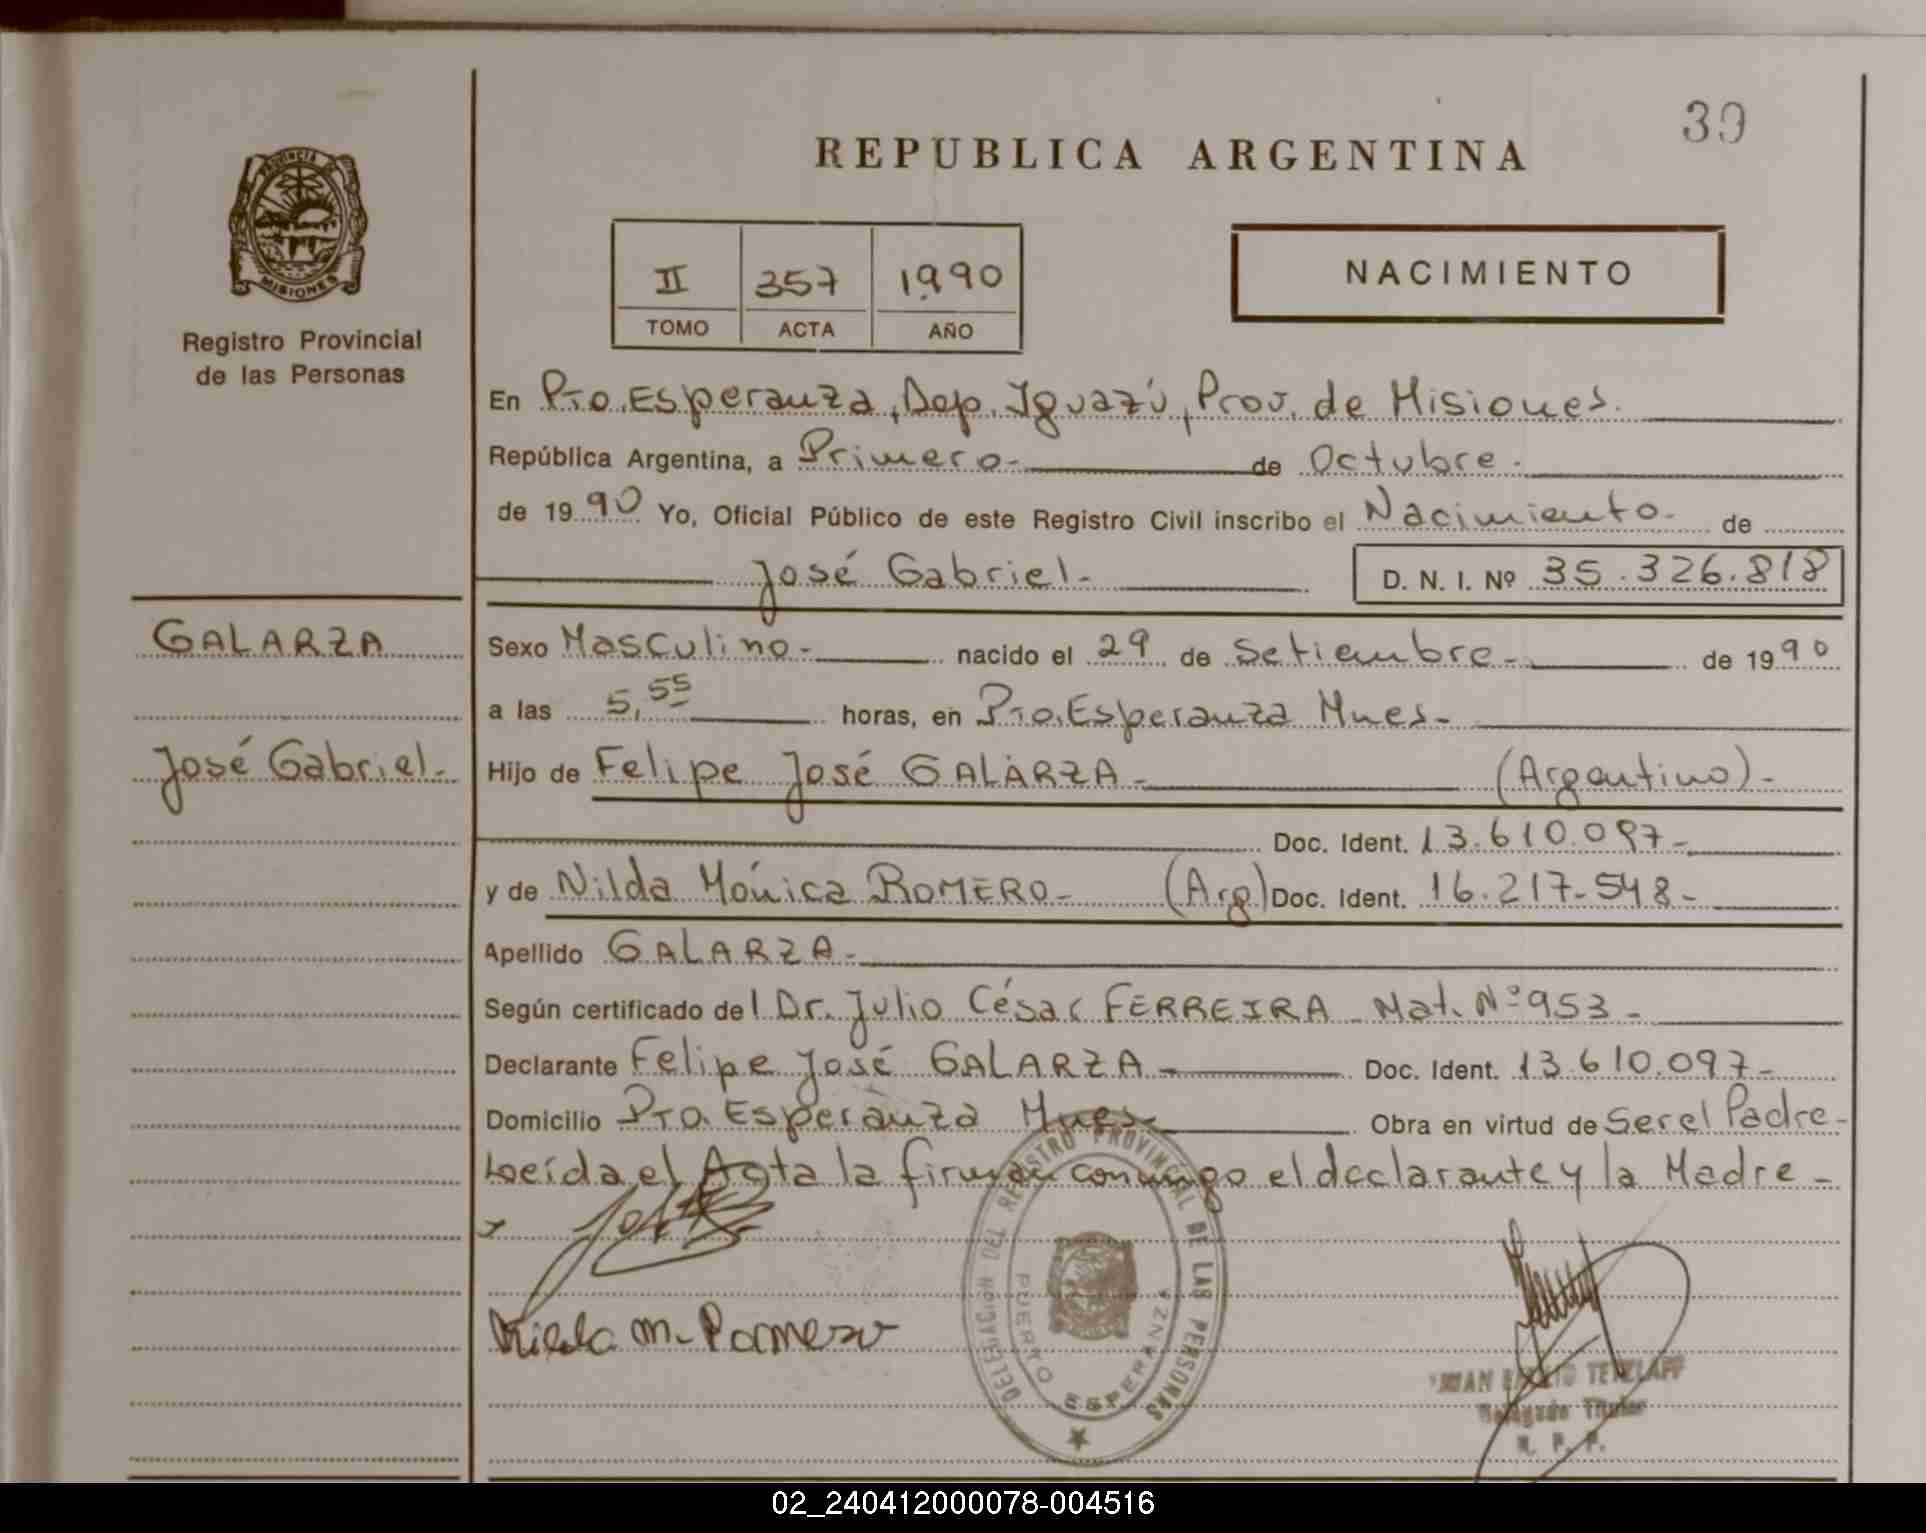 39
REPUBLICA ARGENTINA
PROVINCIA
MISIONES
Registro Provincial
de las Personas
II 357 1990
TOMO ACTA AÑO
NACIMIENTO
En Pto. Esperanza, Dep. Iguazú, Prov. de Misiones.
República Argentina, a Primero- de Octubre.
de 19 90 Yo, Oficial Público de este Registro Civil inscribo el Nacimiento- de
José Gabriel- D. N. I. Nº 35.326.818
GALARZA
José Gabriel-
Sexo Masculino- nacido el 29 de Setiembre- de 19 90
a las 5,55 horas, en Pto. Esperanza Mnes-
Hijo de Felipe José GALARZA- (Argentino)-
Doc. Ident. 13.610.097-
y de Nilda Mónica ROMERO- (Arg) Doc. Ident. 16.217.548-
Apellido GALARZA-
Según certificado del Dr. Julio César FERREIRA - Mat. Nº 953-
Declarante Felipe José GALARZA- Doc. Ident. 13.610.097-
Domicilio Pto. Esperanza Mnes- Obra en virtud de Ser el Padre-
Leída el Acta la firman conmigo el declarante y la Madre-
Nilda M. Romero
DELEGACION DEL REGISTRO PROVINCIAL DE LAS PERSONAS
PUERTO ESPERANZA
TETZLAFF
Delegado Titular
R. P. P.
02_240412000078-004516